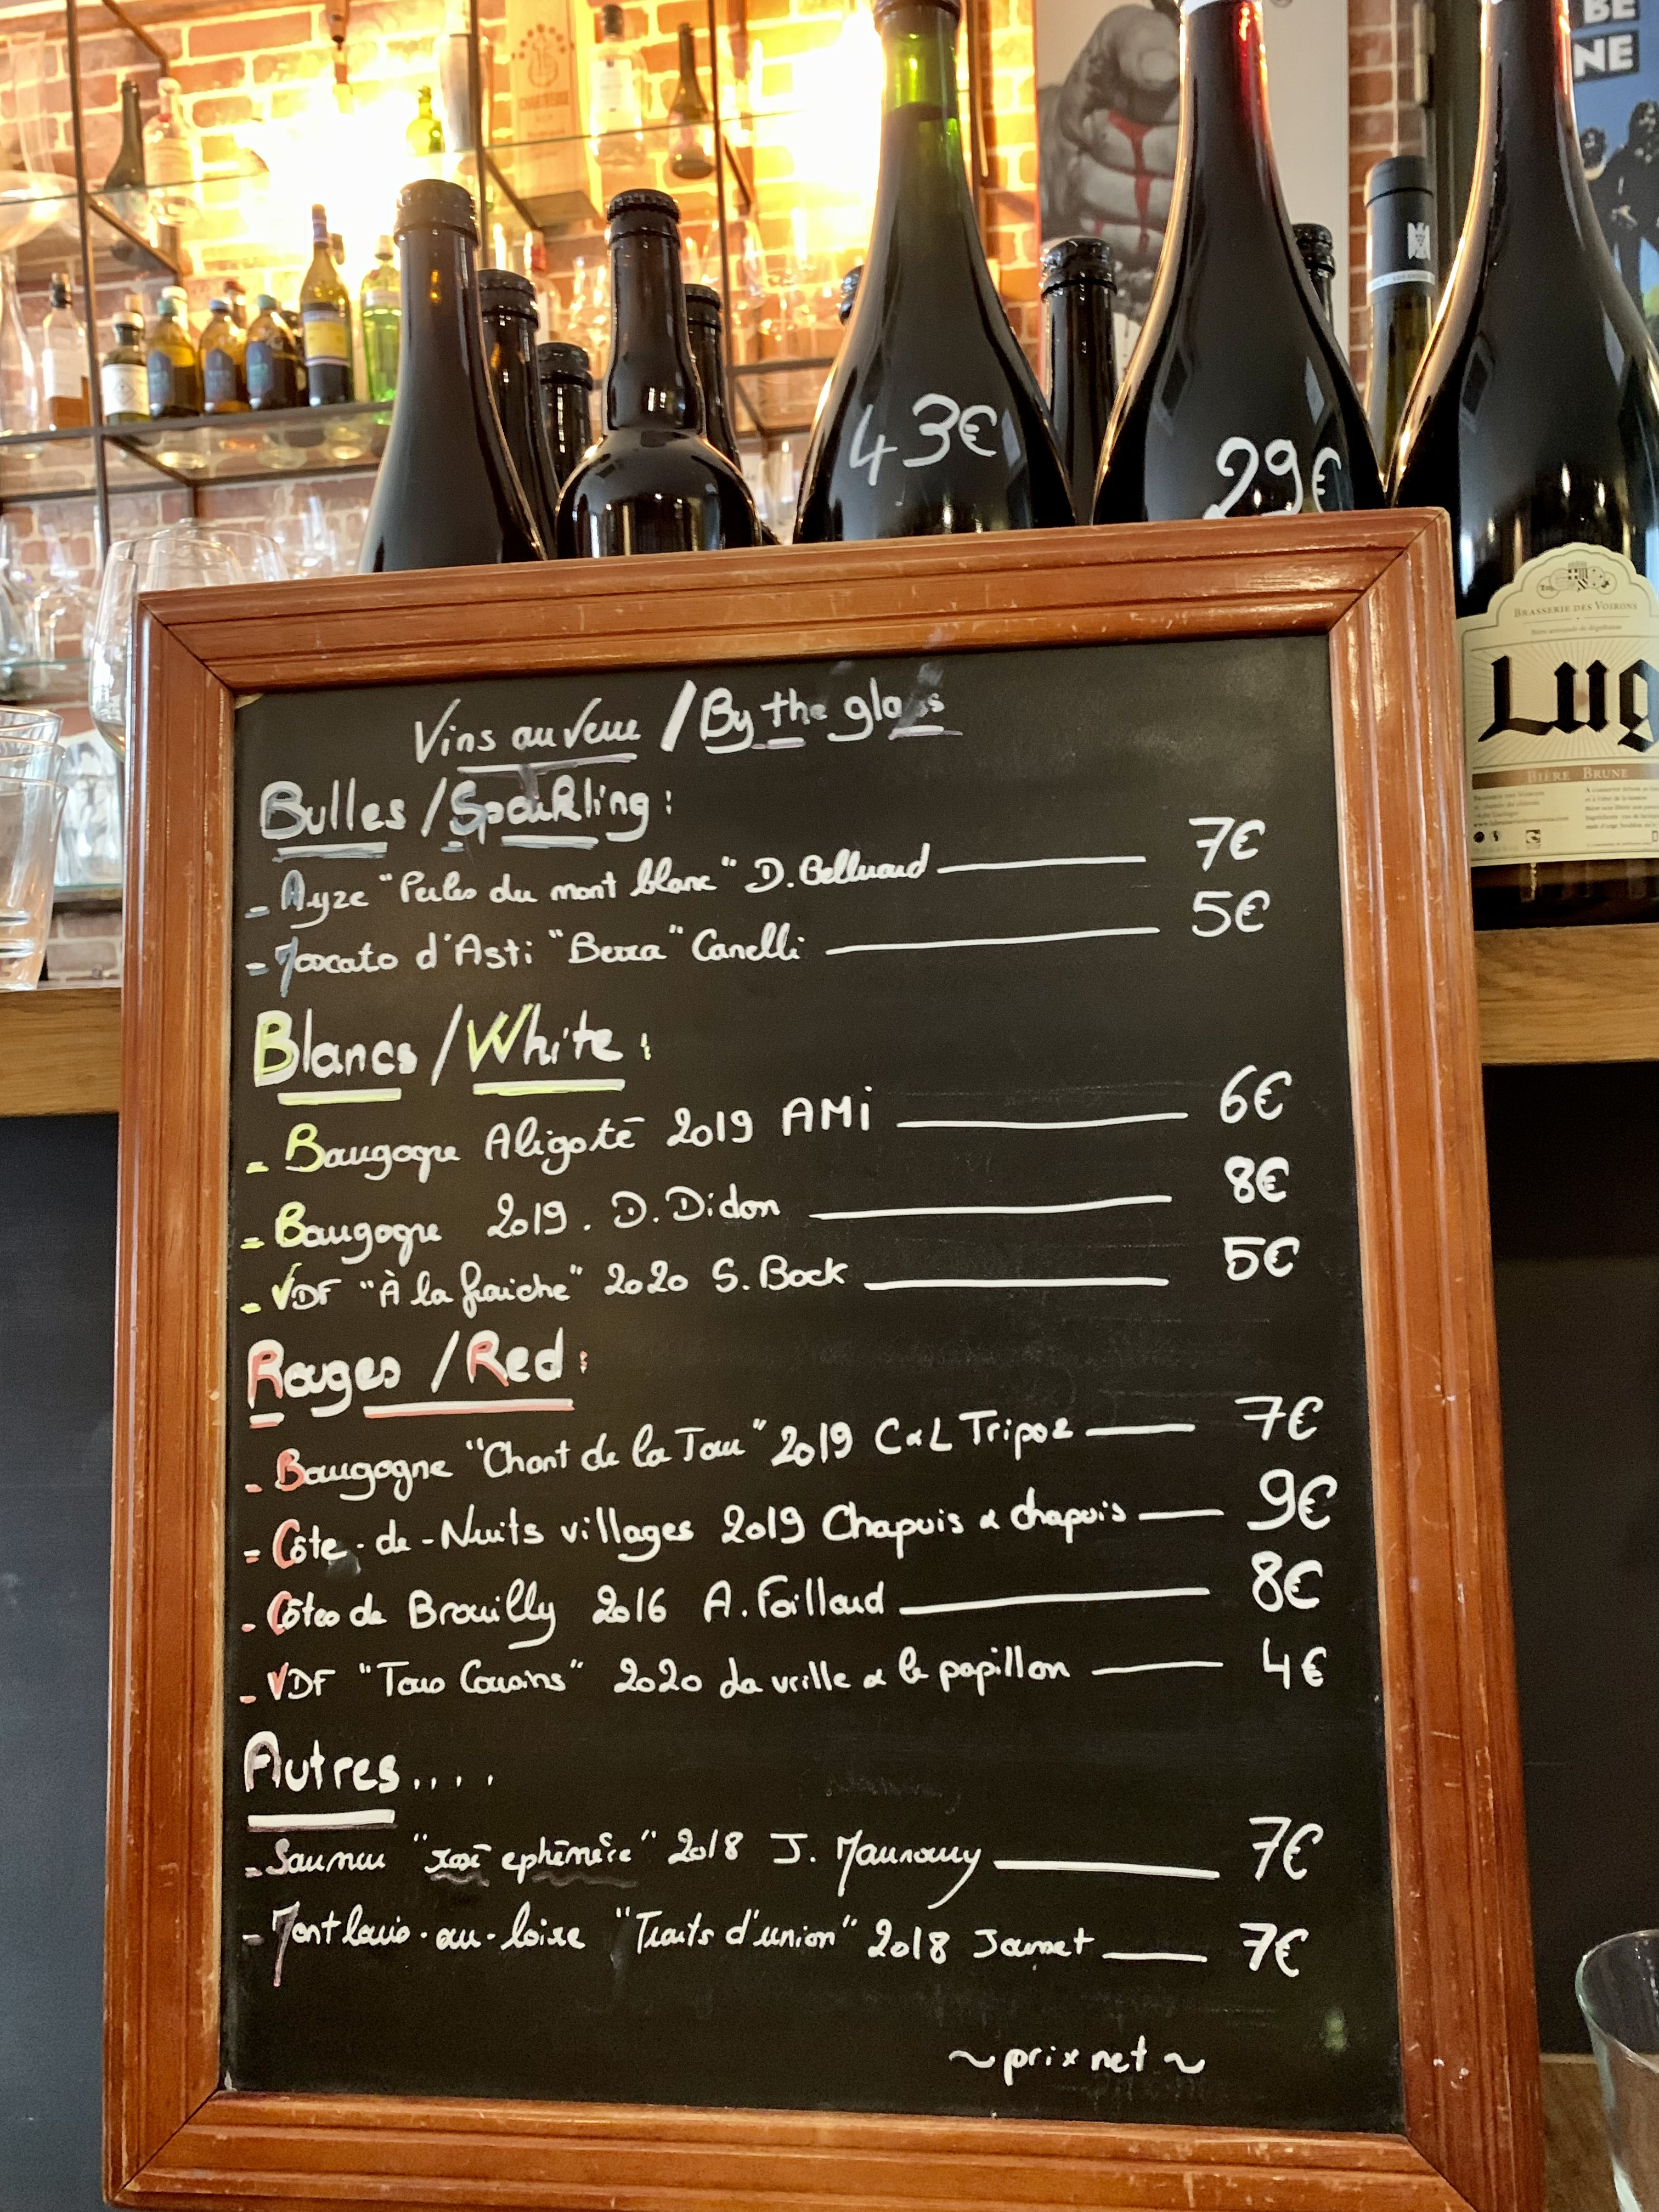 BE
NE
43€
29€
BRASSERIE DES VOIRONS
Lug
BIÈRE BRUNE
Vins au Verre / By the glass
Bulles / Sparkling :
- Ayze "Perles du mont blanc" D. Belluard 7€
- Moscato d'Asti "Berra" Canelli 5€
Blancs / White :
- Bourgogne Aligoté 2019 AMi 6€
- Bourgogne 2019. D. Didon 8€
- VDF "À la fraiche" 2020 S. Bock 5€
Rouges / Red :
- Bourgogne "Chant de la Tour" 2019 C & L Tripoz 7€
- Côte-de-Nuits villages 2019 Chapuis & chapuis 9€
- Côtes de Brouilly 2016 A. Foillard 8€
- VDF "Tous Cousins" 2020 La vrille & le papillon 4€
Autres....
- Saumur "rosé ephémére" 2018 J. Maunoury 7€
- Montlouis-au-loire "Traits d'union" 2018 Jousset 7€
~ prix net ~